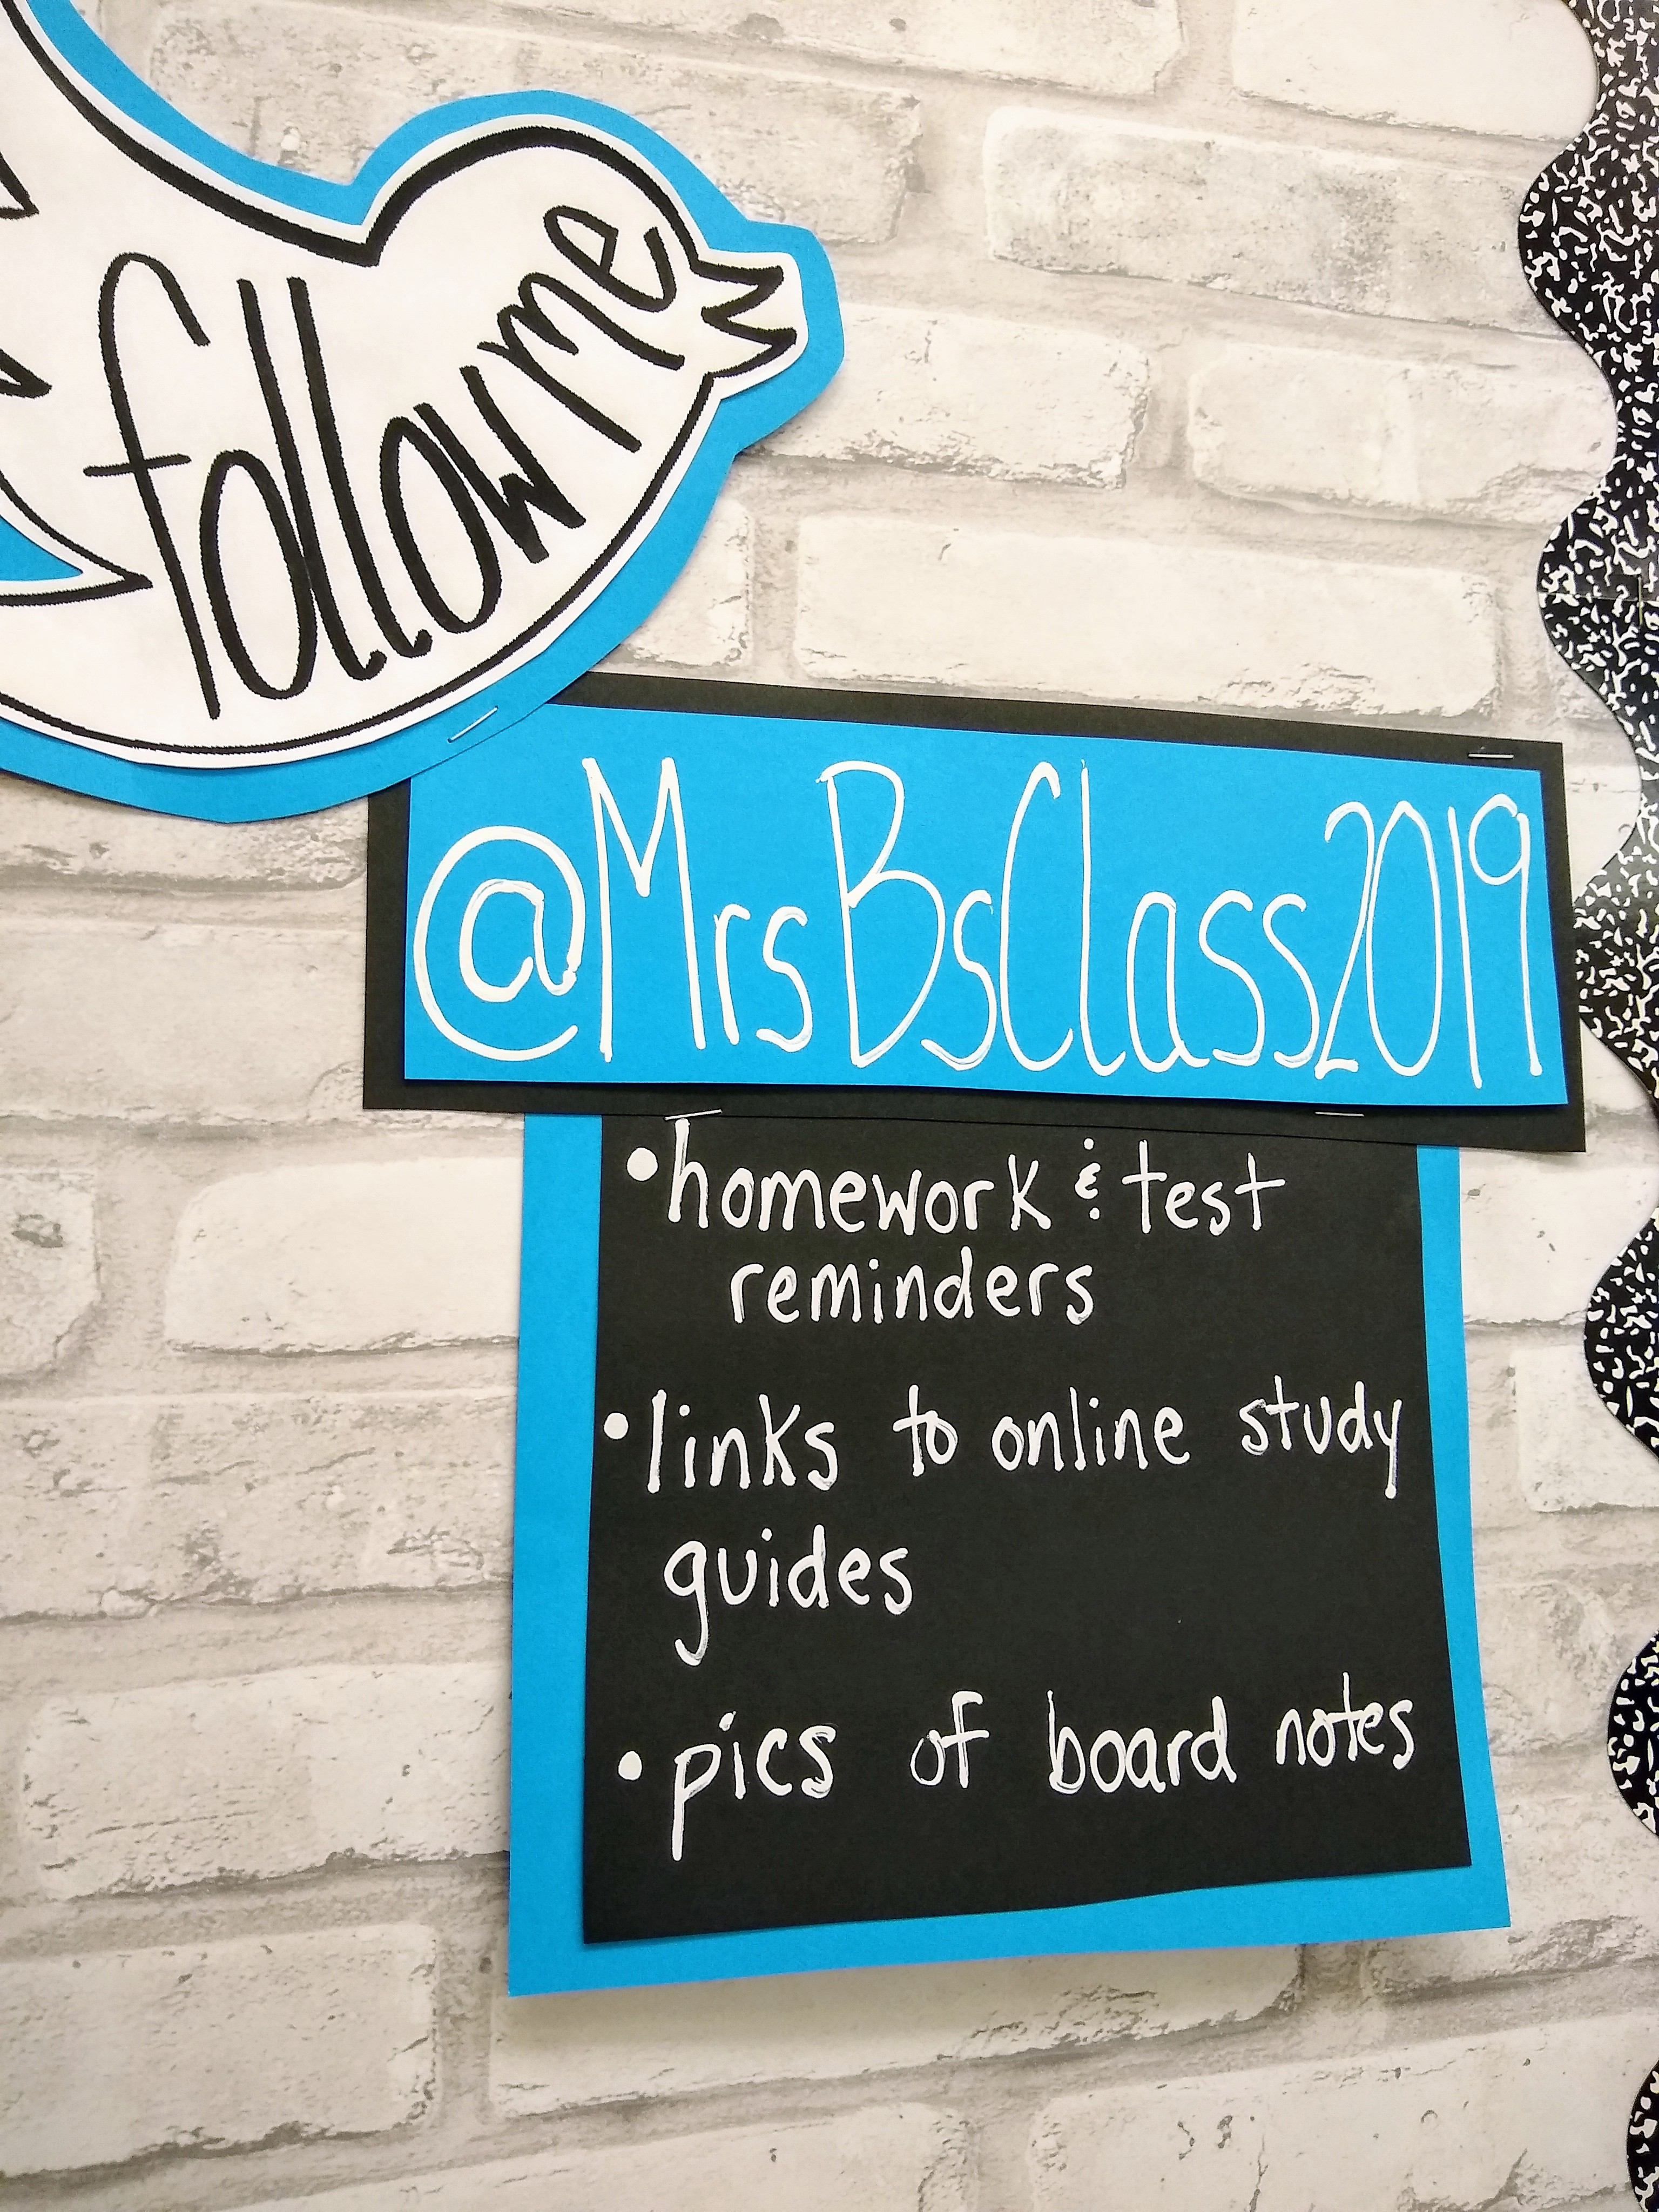 follow me
@MrsBsClass2019
• homework & test
reminders
• links to online study
guides
• pics of board notes